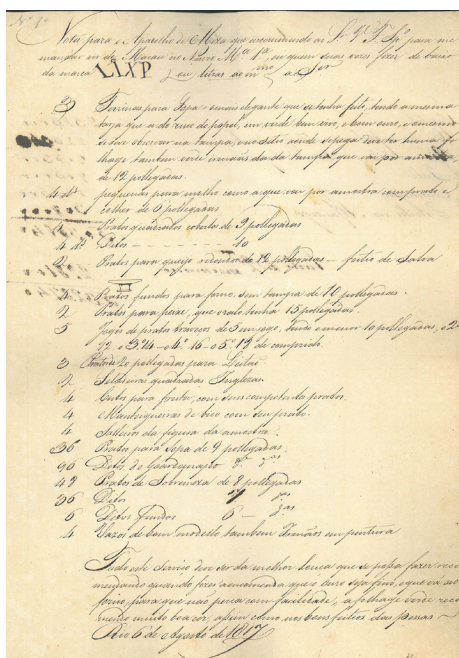 N.º 1º
Nota para o Aparelho de Meza que encomendo ao Sr. para me
mandar vir de Macau no Navio Mª 1ª ou quem suas vezes fizer debaixo
da marca LIXP
3 Tarinas para Sopa emais elegante que setenha feito, tendo amesma
targa que a de verso de papel, em verde bem vivo, e bom ouro, e omesmo
sedeve observar na tampa, eno sitio aonde se pega deve ter huma fo
lhage tambem verde irmãas das da tampa que vai por amostra
de 12 pollegadas.
4 dªˢ pequenas para molho como a que vai por amostra, com prato e
colher de 6 pollegadas
Pratos quadrados cobertos de 9 pollegadas
4 dº Ditos 10
2 Pratos para queijo redondos de 12 pollegadas — feitio de Salva
4 Pratos fundos para forno sem tampa de 10 pollegadas.
2 Pratos para peixe, que oralo tenha 15 pollegadas.
5 Jogos de pratos travecos de 5 em jogo, tendo o menor 10 pollegadas, o 2º
12, o 3º 14 — o 4º 16 — o 5º 18 de comprido.
3 Pratos de 20 pollegadas para Leitão
2 Saldeiras quadradas Inglezas.
4 Cestos para fruta, com seus competentes pratos.
4 Manteigueiras de bico com seu prato.
4 Salleiros da figura da amostra.
36 Pratos para Sopa de 9 pollegadas.
96 Ditos de Goardanapo 8 ditas
42 Pratos de Sobremeza de 8 pollegadas
36 Ditos 7 dªˢ
6 Ditos Fundos 6 — dªˢ
4 Vazos de bom modello tambem Irmãos em pintura
Todo este Servico deve ser da melhor Louca que se possa fazer reco
mendando quando fizer a encomenda, que o barro seja fino, e que va ao
forno, para que não parta com facilidade, a folhage verde reco
mendo muito boa cor, assim como os bons feitios das pessas —
Rio 6 de Agosto de 1817